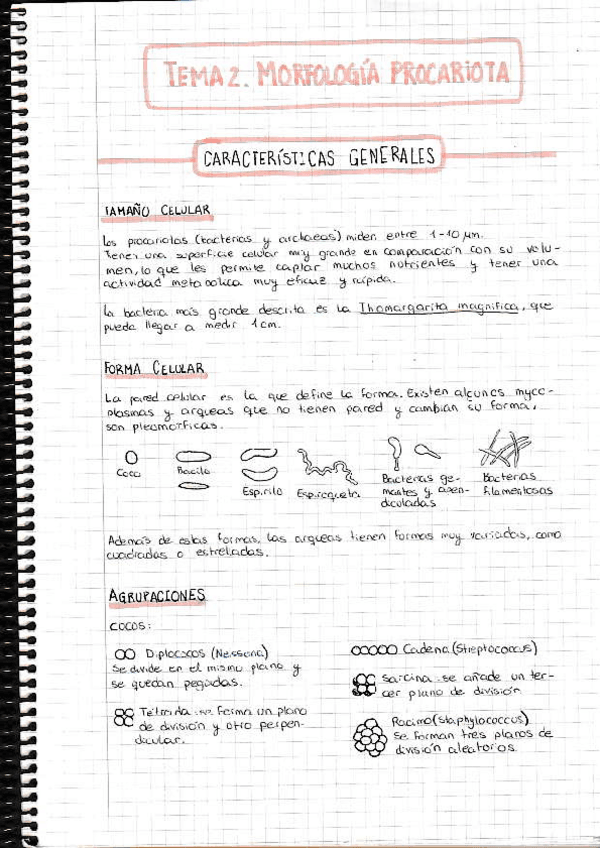 TEMA 2. MORFOLOGÍA PROCARIOTA
CARACTERÍSTICAS GENERALES
TAMAÑO CELULAR
Los procariotas (bacterias y archaeas) miden entre 1-10 μm.
Tener una superficie celular muy grande en comparación con su volu-
men, lo que les permite captar muchos nutrientes y tener una
actividad metabólica muy eficaz y rápida.
La bacteria más grande descrita es la Thiomargarita magnifica, que
puede llegar a medir 1cm.
FORMA CELULAR
La pared celular es la que define la forma. Existen algunos myco-
plasmas y arqueas que no tienen pared y cambian su forma,
son pleomórficas.
Coco
Bacilo
Espirilo
Espiroqueta
Bacterias ge-
mantes y apen-
diculadas
Bacterias
filamentosas
Además de estas formas, las arqueas tienen formas muy variadas, como
cuadradas o estrelladas.
AGRUPACIONES
COCOS:
Diplococos (Neisseria)
Se divide en el mismo plano y
se quedan pegadas.
Tétrada: se forma un plano
de división y otro perpen-
dicular.
Cadena (Streptococcus)
Sarcina: se añade un ter-
cer plano de división
Racimo (Staphylococcus)
Se forman tres planos de
división aleatorios.